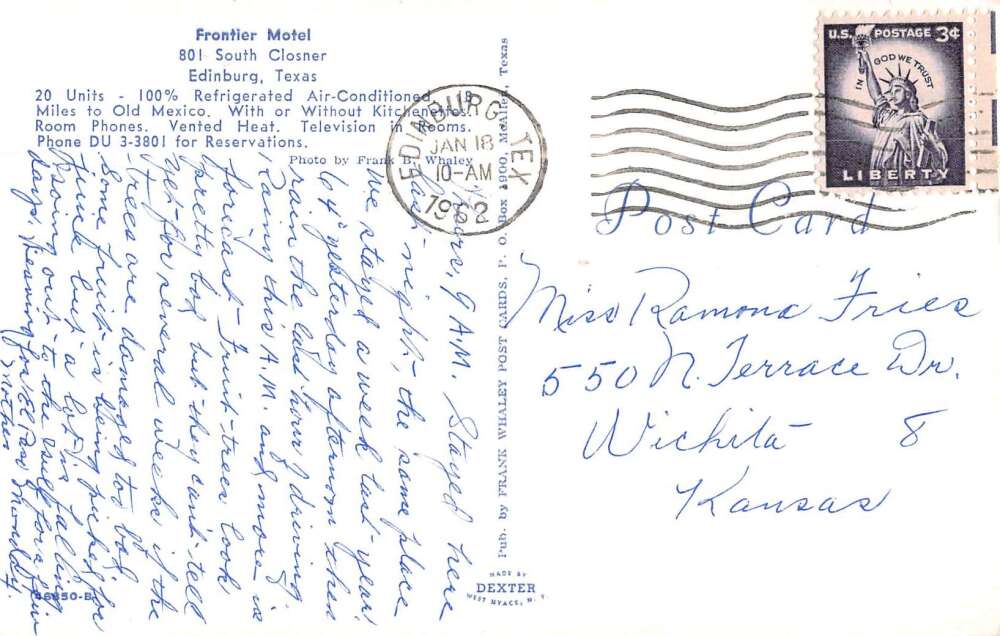 Frontier Motel
801 South Closner
Edinburg, Texas
20 Units - 100% Refrigerated Air-Conditioned. 18
Miles to Old Mexico. With or Without Kitchenettes.
Room Phones. Vented Heat. Television in Rooms.
Phone DU 3-3801 for Reservations.
Photo by Frank B. Whaley
Thurs, 9 A.M. Stayed here
last night, the same place
we stayed a week last year.
to 4" yesterday afternoon then
rain the last hour of driving.
Rainy this A.M. and more is
forecast. Fruit trees look
pretty bad but they can't tell
yet for several weeks if the
trees are damaged too bad.
Some fruit is being picked for
juice but a lot is falling.
Going out to the Gulf for a few
days, leaving for El Paso Monday.
Mother
46850-B
Pub. by FRANK WHALEY POST CARDS, P. O. Box 1900, McAllen, Texas
MADE BY
DEXTER
WEST NYACK, N. Y.
EDINBURG TEX.
JAN 18
10-AM
1962
U.S. POSTAGE 3¢
IN GOD WE TRUST
LIBERTY
Post Card
Miss Ramona Fries
550 N. Terrace Dr.
Wichita 8
Kansas